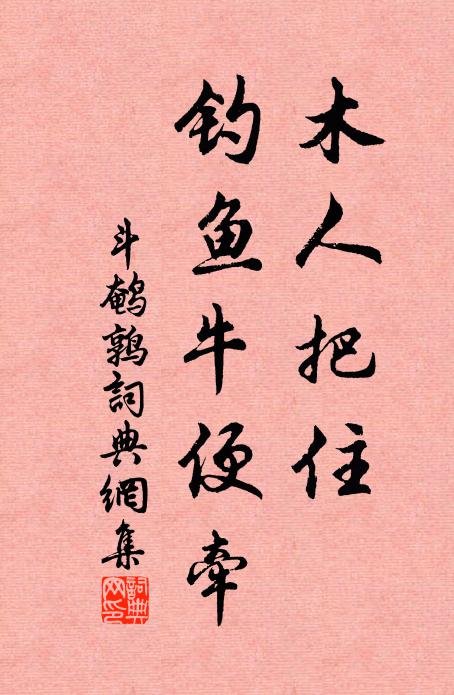 木人把住
钓鱼牛便牵
斗鹌鹑詞典網集
詞典网印